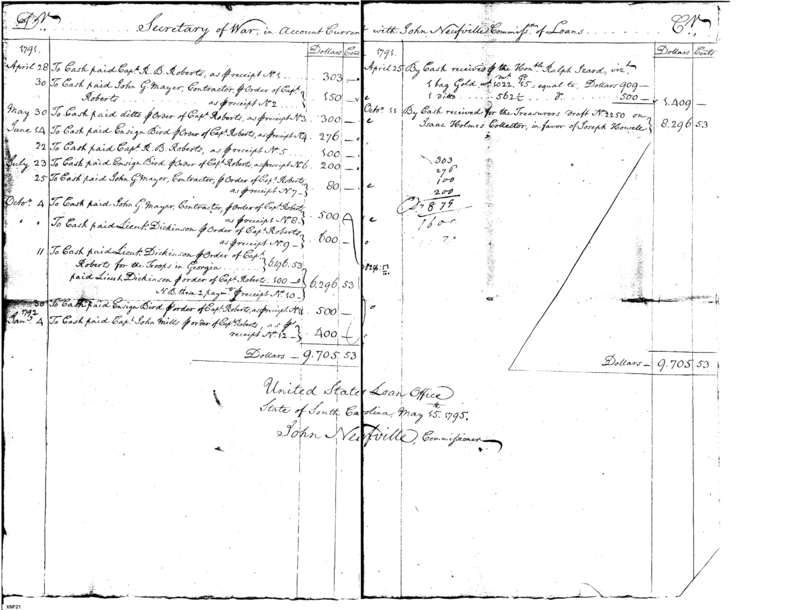 Dr. Secretary of War, in Account Current with John Neufville Commissr. of Loans Cr.
Dollars Cts
1791.
April 28 To Cash paid Capt. R. B. Roberts, as ⅌ receipt No. 1 303 —
30 To Cash paid John G Mayer, Contractor, ⅌ Order of Capt.
Roberts as ⅌ receipt No. 2 150 —
May 30 To Cash paid ditto ⅌ Order of Capt. Roberts, as ⅌ receipt No. 3 300 —
June 14 To Cash paid Ensign Bird ⅌ Order of Capt. Roberts, as ⅌ receipt No. 4 276 —
22 To Cash paid Capt. R. B. Roberts, as ⅌ receipt No. 5 100 —
July 23 To Cash paid Ensign Bird ⅌ Order of Capt. Roberts, as ⅌ receipt No. 6 200 —
25 To Cash paid John G Mayer, Contractor, ⅌ Order of Capt. Roberts
as ⅌ receipt No. 7 80 —
Octor. 4 To Cash paid John G Mayer, Contractor, ⅌ Order of Capt. Roberts
as ⅌ receipt No. 8 500
" " To Cash paid Lieut. Dickinson ⅌ Order of Capt. Roberts,
as ⅌ receipt No. 9 600 —
11 To Cash paid Lieut. Dickinson ⅌ Order of Capt.
Roberts for the Troops in Georgia 6196.53
paid Lieut. Dickinson ⅌ order of Capt. Roberts 100 —
N.B. these 2 paymts. ⅌ receipt No. 10 6,296 53
30 To Cash paid Ensign Bird ⅌ order of Capt. Roberts, as ⅌ receipt No. 11 500 —
1792
Jany. 4 To Cash paid Capt. John Mills ⅌ order of Capt. Roberts, as ⅌
receipt No. 12 400
Dollars — 9.705 53
Dollars Cents
1791.
April 25 By Cash received of the Honble. Ralph Izard, vizt.
1 bag Gold 1022 equal to Dollars 909 —
1 ditto 562½ do. 500 — 1.409 —
Octor. 11 By Cash received for the Treasurers Draft No. 2250 on
Isaac Holmes Collector, in favor of Joseph Howell 8.296 53
303
276
100
200
879
1600
Dollars — 9.705 53
United States Loan Office
State of South Carolina, May 15th. 1795.
John Neufville, Commissioner
KNP21